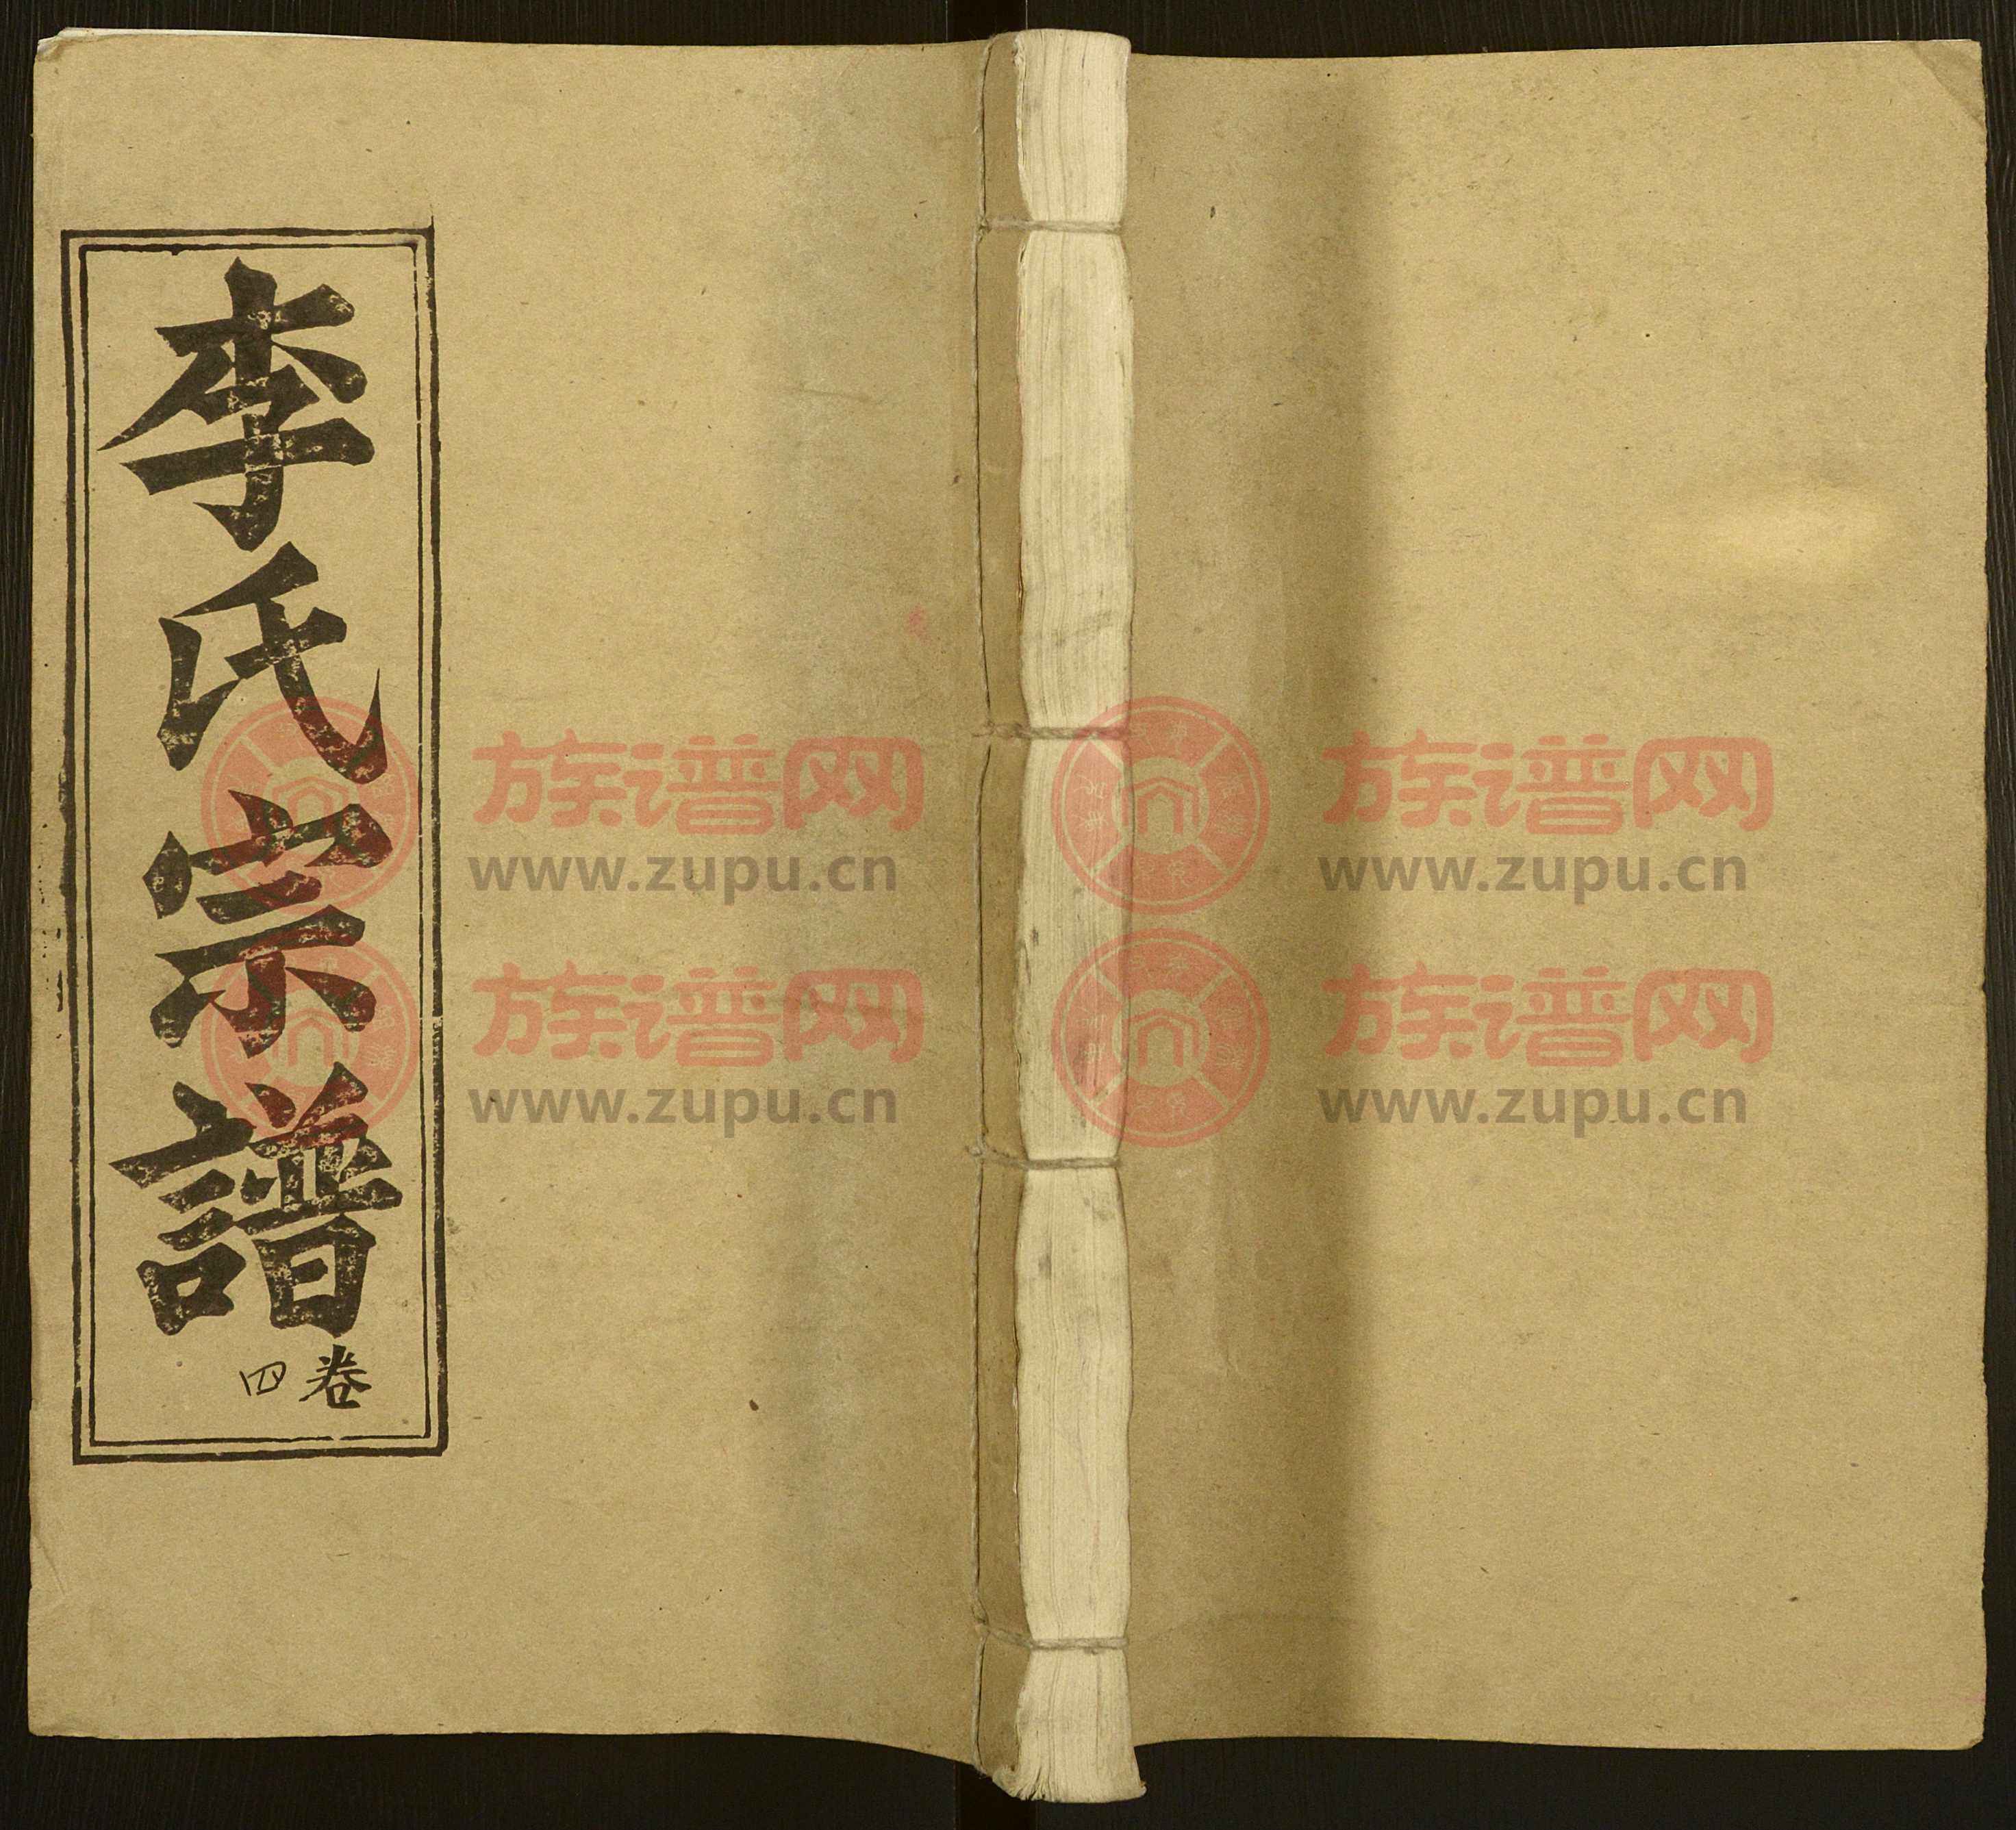 李氏宗譜
卷四
族谱网
www.zupu.cn
族谱网
www.zupu.cn
族谱网
www.zupu.cn
族谱网
www.zupu.cn